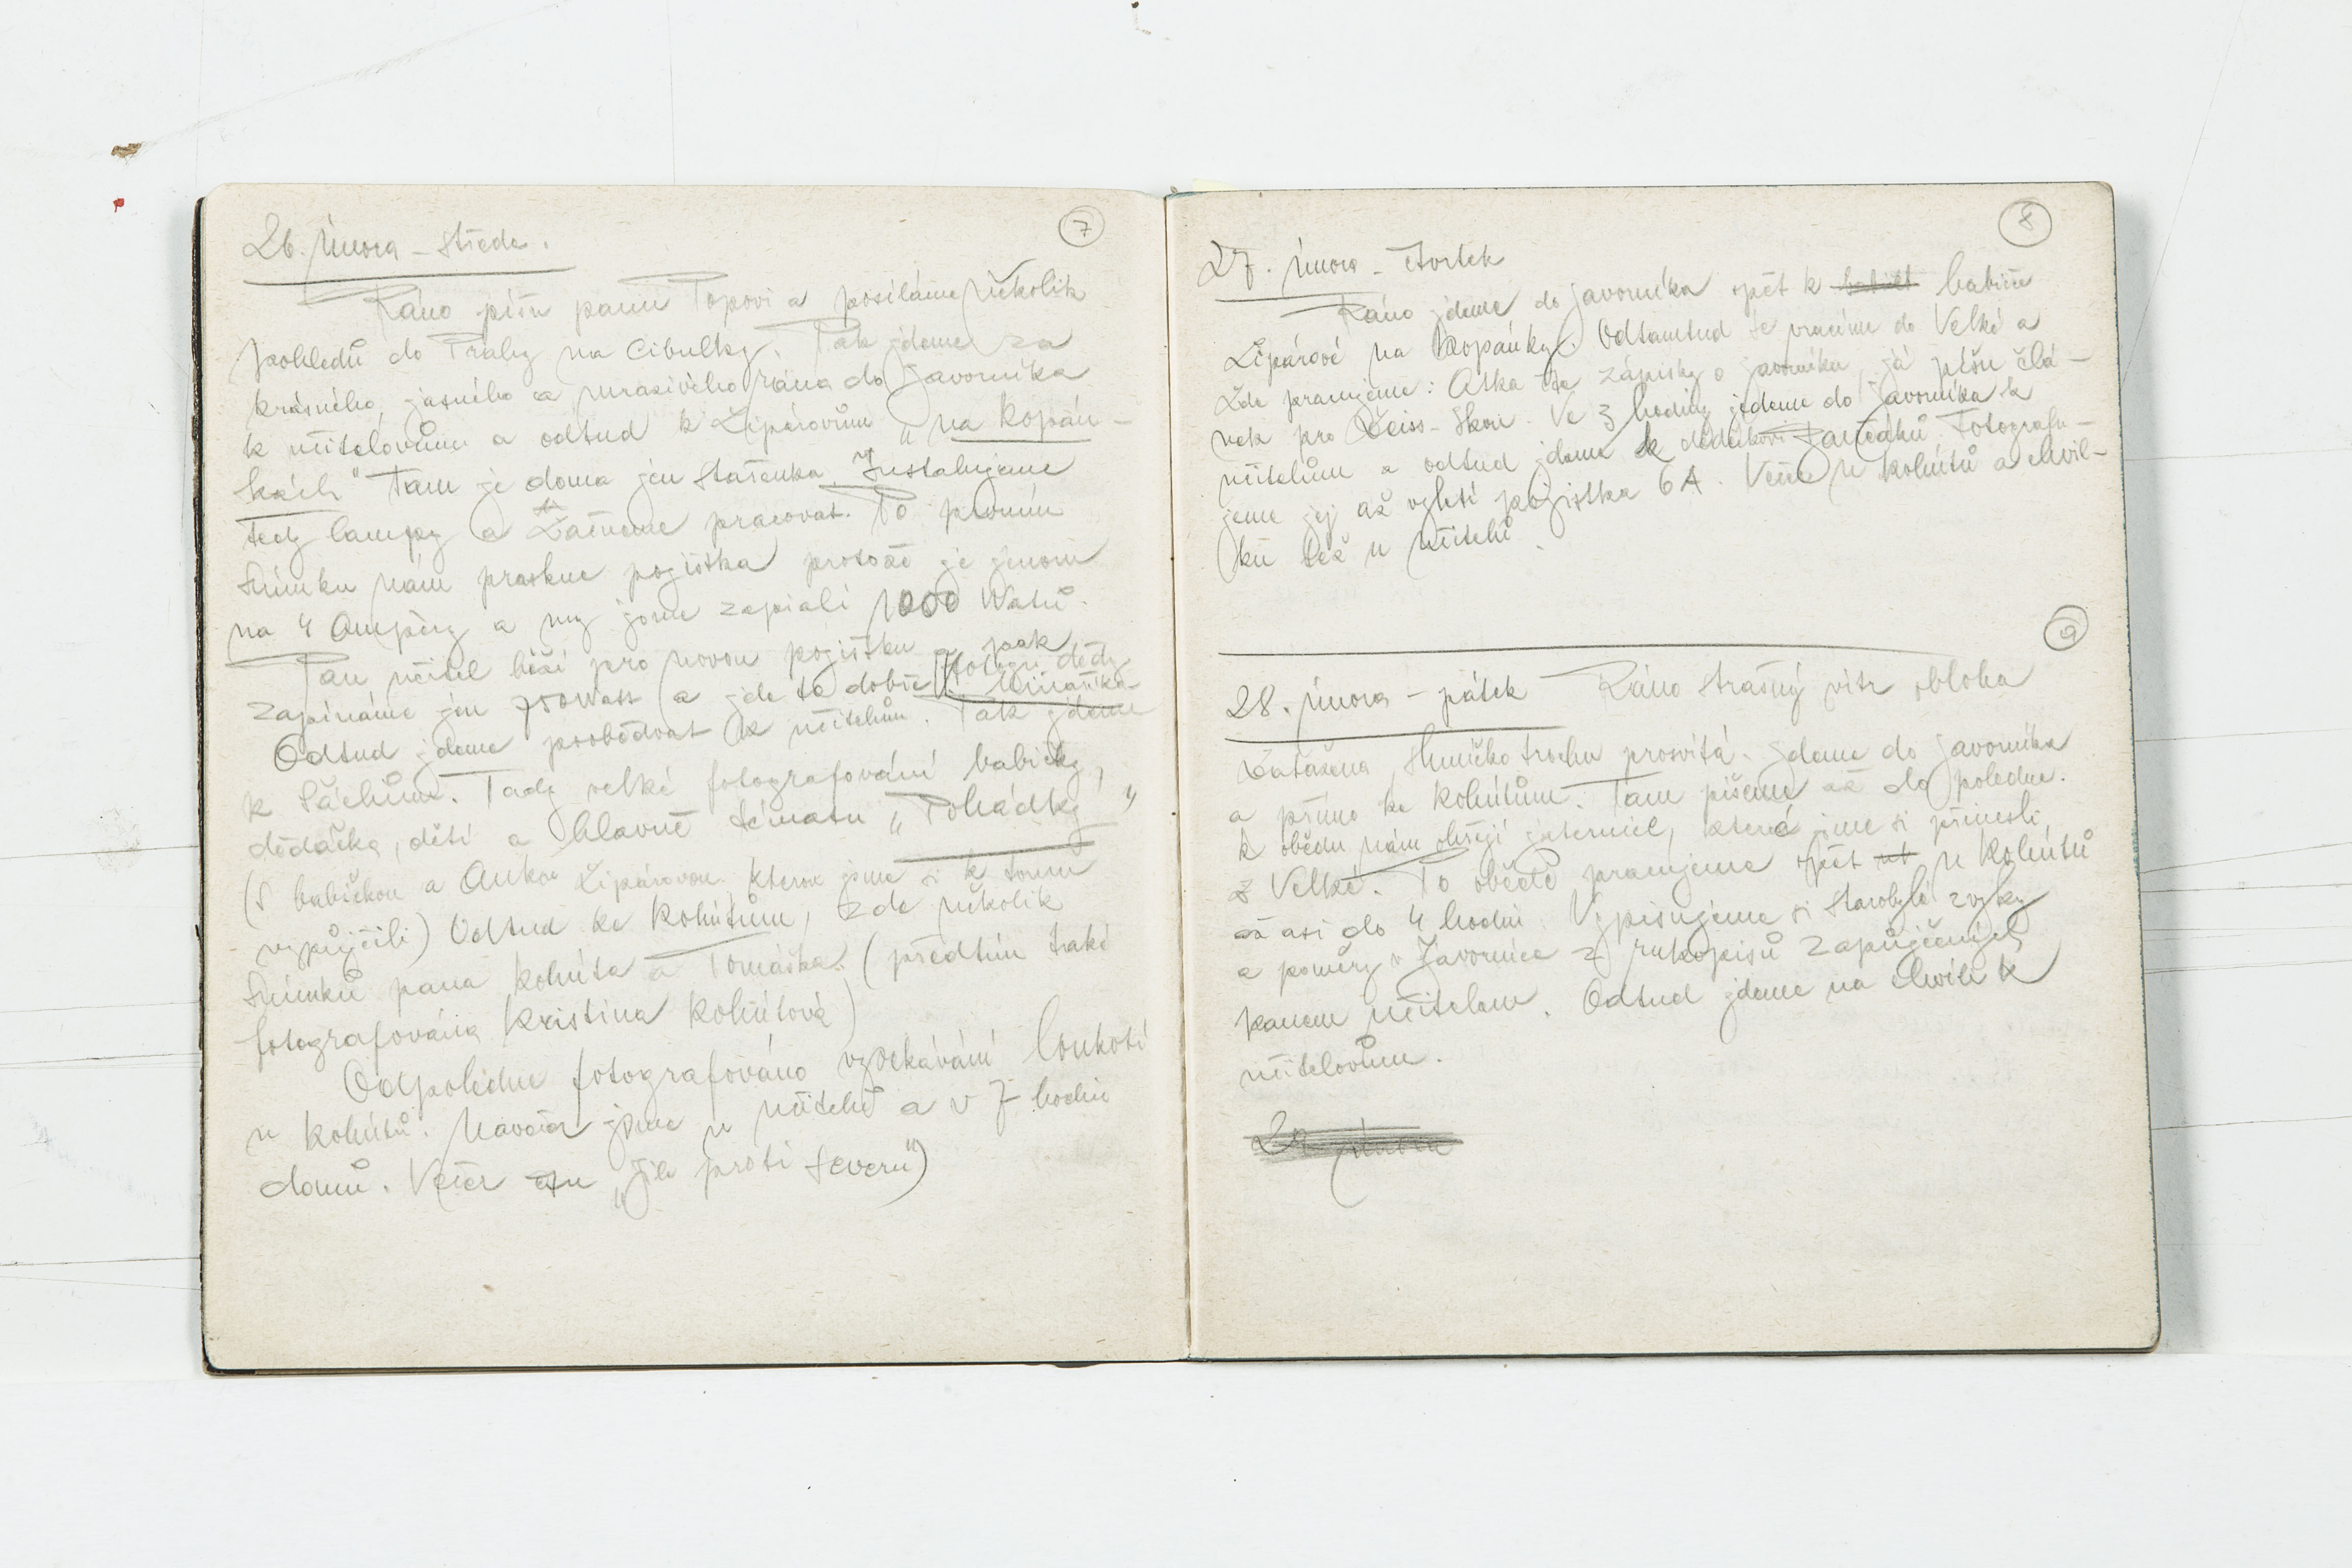 7
26. února - středa.
Ráno píšu panu Popovi a posíláme několik
pohledů do Prahy na Cibulky. Pak jdeme za
krásného, jasného a mrazivého rána do Javorníka
k učitelovům a odtud k Žipárovům „na kopán-
kách" Tam je doma jen stařenka. Instalujeme
tedy lampy a začneme pracovat. Po prvním
snímku nám praskne pojistka protože je jenom
na 4 Ampéry a my jsme zapjali 1000 Watů.
Pan učitel běží pro novou pojistku a pak
zapínáme jen 750 Watt a jde to dobře. (fotogr. dědy
Miňaříka
Odtud jdeme poobědvat k učitelům. Pak jdeme
k Šáchům. Tady velké fotografování babičky,
dědáčka, dětí a hlavně tématu „Pohádky"
(S babičkou a Ankou Žipárovou kterou jsme si k tomu
vypůjčili) Odtud ke Kohútům, zde několik
snímků pana Kohúta a Tomáška. (předtím také
fotografována Kristina Kohútová)
Odpoledne fotografováno vysekávání loukotí
u Kohútů. Navečer jsme u učitelů a v 7 hodin
domů. Večer čtu „Jih proti Severu")
8
27. února - čtvrtek
Ráno jdeme do Javorníka opět k babičce
Žipárové na Kopánky. Odtamtud se vracíme do Velké a
zde pracujeme: Atka čte zápisky o Javorníku, já píšu člá-
nek pro Zeiss-Ikon. Ve 3 hodiny jedeme do Javorníka k
učitelům a odtud jdeme k dědečkovi Janečků. Fotografu-
jeme jej až vyletí pojistka 6A. Večer u Kohútů a chvil-
ku též u učitelů.
9
28. února - pátek Ráno strašný vítr obloha
zatažena, sluníčko trochu prosvítá. Jdeme do Javorníka
a přímo ke Kohútům. Tam píšeme až do poledne.
K obědu nám ohřejí jaternice, které jsme si přinesli
z Velké. Po obědě pracujeme opět u Kohútů
až asi do 4 hodin. Vypisujeme si starobylé zvyky
a poměry v Javorníce z rukopisů zapůjčených
panem učitelem. Odtud jdeme na chvíli k
učitelovům.